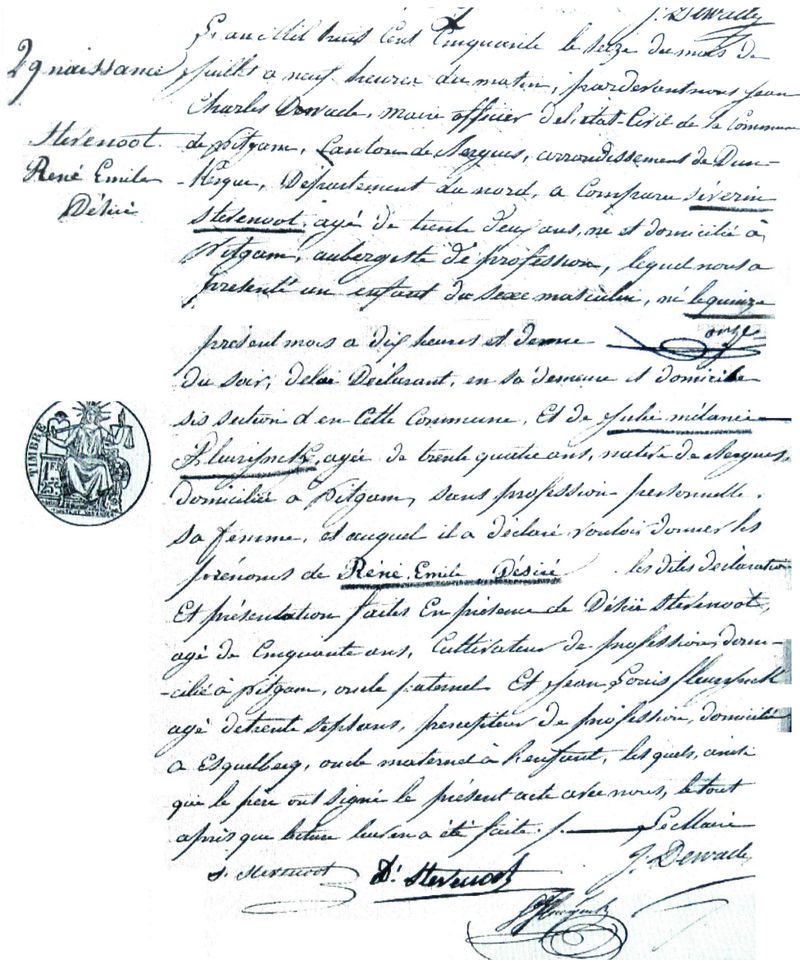 J. Dewacle
29 naissance
Stevenoot
René Emile
Désiré
L'an Mil huit Cent Cinquante le seize du mois de
Juillet a neuf heures du matin, pardevant nous Jean
Charles Dewacle, maire officier del'état-Civil de la Commune
de Pitgam, Canton de Bergues, arrondissement de Dun-
-kerque, Département du nord, a Comparu séverin
Stevenoot, agé de trente deux ans, né et domicilié à
Pitgam, aubergiste de profession, lequel nous a
présenté un enfant du sexe masculin, né le quinze
onze
présent mois a dix heures et demie
du soir, de lui Déclarant, en sa demeure et domicile
sis section d en Cette Commune, Et de Julie mélanie
Fleurynck, agée de trente quatre ans, native de Bergues,
domiciliée à Pitgam, sans profession personnelle,
sa femme, et auquel il a déclaré vouloir donner les
prénoms de Réné Emile Désiré les dites déclaration
Et présentation faites En présence de Désiré Stevenoot,
agé de Cinquante ans, Cultivateur de profession, domi-
-cilié à Pitgam, oncle paternel Et Jean Louis fleurynck
agé de trente sept ans, percepteur de profession, domicilié
a Esquelbecq, oncle maternel à l'enfant, les quels, ainsi
que le père ont signé le présent acte avec nous, le tout
après que lecture leur en a été faite ./. Le Maire
S. Stevenoot D. Stevenoot J. Dewacle
Fleurynck
TIMBRE
25